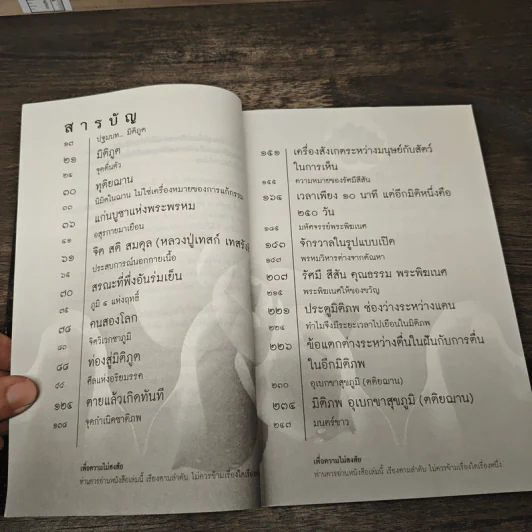 สารบัญ
๑๗ ปฐมบท... มิติภูต
๒๑ มิติภูต
๒๕ จุดตื่นตัว
๓๐ ทุติยฌาน
๓๓ นิมิตในฌาน ไม่ใช่เครื่องหมายของการแก้กรรม
๓๖ แก่นบูชาแห่งพระพรหม
๔๑ อสุรกายมาเยือน
๖๑ จิต สติ สมดุล (หลวงปู่เทสก์ เทสรังสี)
๖๕ ประสบการณ์นอกกายเนื้อ
๗๐ สรณะที่พึ่งอันร่มเย็น
๗๕ ภูมิ ๔ แห่งฤทธิ์
๗๘ คนสองโลก
๘๐ จิตวิเวกซาภูมิ
๘๘ ท่องสู่มิติภูต
ศีลแห่งอริยมรรค
๑๒๔ ตายแล้วเกิดทันที
๑๐๘ จุดกำเนิดชาติภพ
เพื่อความไม่สงสัย
ท่านควรอ่านหนังสือเล่มนี้ เรียงตามลำดับ ไม่ควรข้ามเรื่องใดเรื่อง
๑๕๑ เครื่องสังเกตระหว่างมนุษย์กับสัตว์
ในการเห็น
๑๕๕ ความหมายของรัศมีสีสัน
๑๖๔ เวลาเพียง ๑๐ นาที แต่อีกมิติหนึ่งคือ
๒๕๐ วัน
มหัศจรรย์พระพิฆเนศ
๑๘๓ จักรวาลในรูปแบบเปิด
๑๘๗ พรหมวิหารต่างจากตัณหา
๒๐๗ รัศมี สีสัน คุณธรรม พระพิฆเนศ
๒๑๕ พระพิฆเนศให้ของขวัญ
๒๒๑ ประตูมิติภพ ช่องว่างระหว่างแดน
๒๒๔ ทำไมจึงมีระยะเวลาไปเยือนในมิติภพ
๒๒๖ ข้อแตกต่างระหว่างตื่นในฝันกับการตื่น
ในอีกมิติภพ
๒๓๐ อุเบกขาสุขภูมิ (ตติยฌาน)
๒๓๔ มิติภพ อุเบกขาสุขภูมิ (ตติยฌาน)
๒๔๓ มนตร์ขาว
เพื่อความไม่สงสัย
ท่านควรอ่านหนังสือเล่มนี้ เรียงตามลำดับ ไม่ควรข้ามเรื่องใดเรื่องหนึ่ง